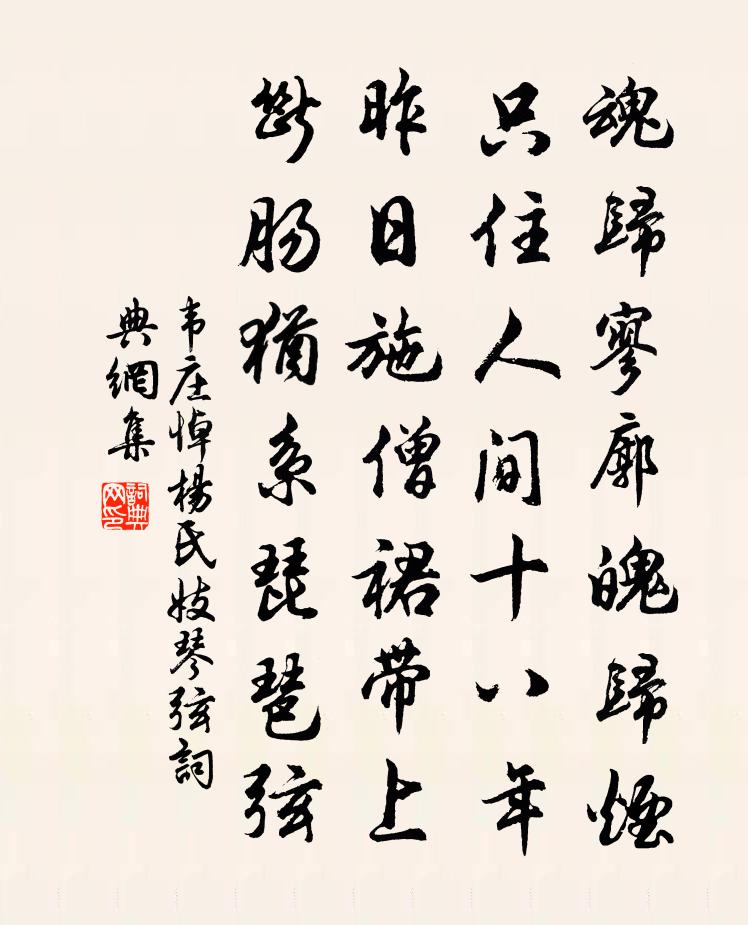 魂歸寥廓魄歸煙
只住人間十八年
昨日施僧裙帶上
斷腸猶系琵琶弦
韦庄悼楊氏妓琴弦詞
典網集
詞典网印